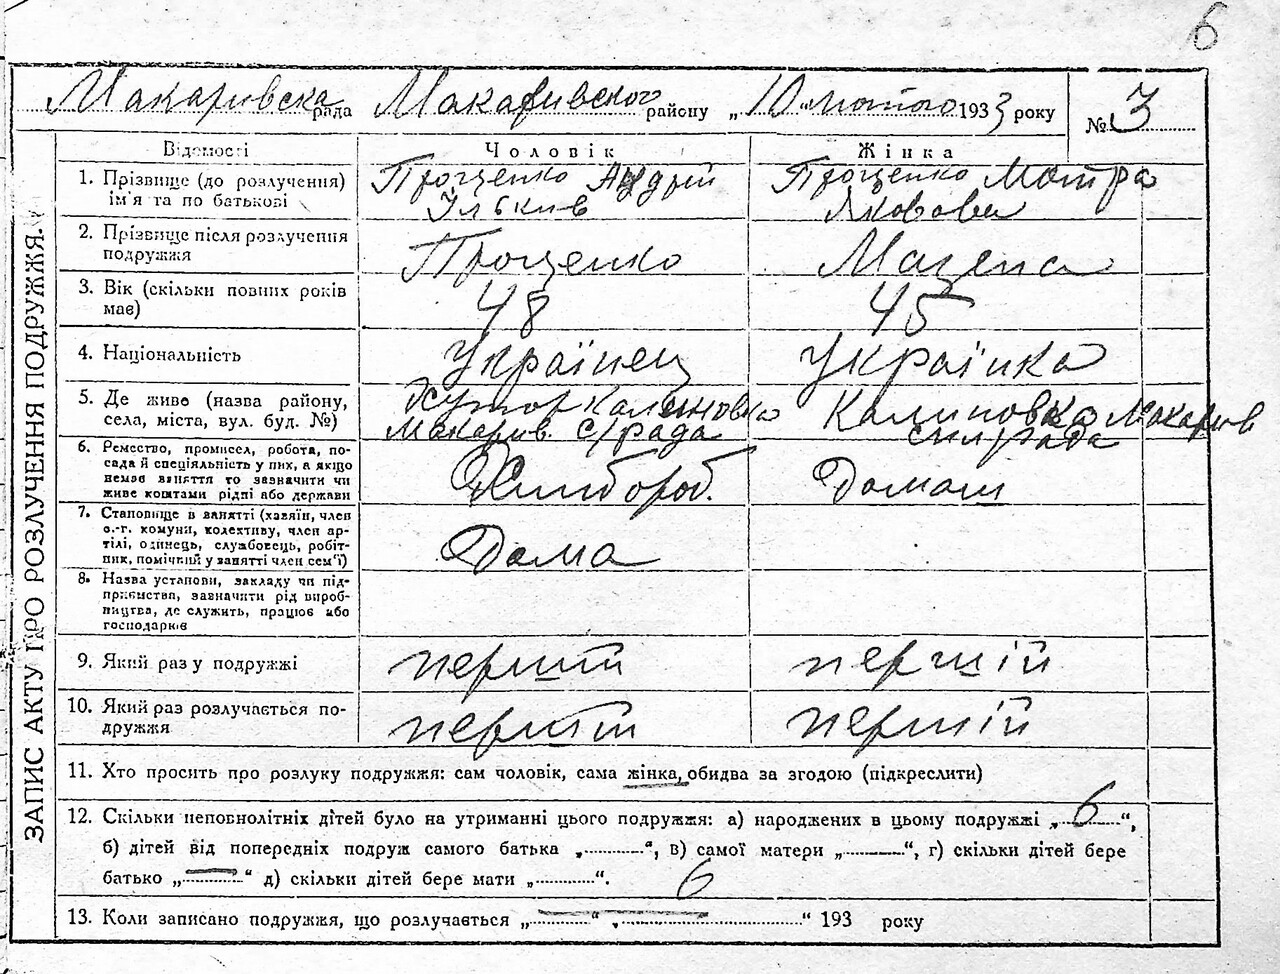 6
Макаривска рада Макаривского району „10 лютого 1933 року № 3
Відомості Чоловік Жінка
1. Прізвище (до розлучення) ім'я та по батькові
Проценко Андрій
Ільків
Проценко Мотря
Яковова
2. Прізвище після розлучення подружжя
Проценко
Мазепа
3. Вік (скільки повних років має)
48
45
4. Національність
Українец
Українка
5. Де живе (назва району, села, міста, вул. буд. №)
Хутор Калиновка
Макарив. с/рада
Калиновка Макарив
силрада
6. Ремество, промисел, робота, посада й спеціяльність у них, а якщо немає заняття то зазначити чи живе коштами рідні або держави
Хлибороб.
Домаш
7. Становище в занятті (хазяїн, член с.-г. комуни, колективу, член артілі, одинець, службовець, робітник, помічний у занятті член сем'ї)
Дома
8. Назва установи, закладу чи підприємства, зазначити рід виробництва, де служить, працює або господарків
9. Який раз у подружжі
перший
першій
10. Який раз розлучається подружжя
перший
першій
11. Хто просить про розлуку подружжя: сам чоловік, сама жінка, обидва за згодою (підкреслити)
12. Скільки неповнолітніх дітей було на утриманні цього подружжя: а) народжених в цьому подружжі „ 6 “,
б) дітей від попередніх подруж самого батька „ “, в) самої матери „ “, г) скільки дітей бере
батько „ — “ д) скільки дітей бере мати „ “. 6
13. Коли записано подружжя, що розлучається „ — “ — “ 193 року
ЗАПИС АКТУ ПРО РОЗЛУЧЕННЯ ПОДРУЖЖЯ.